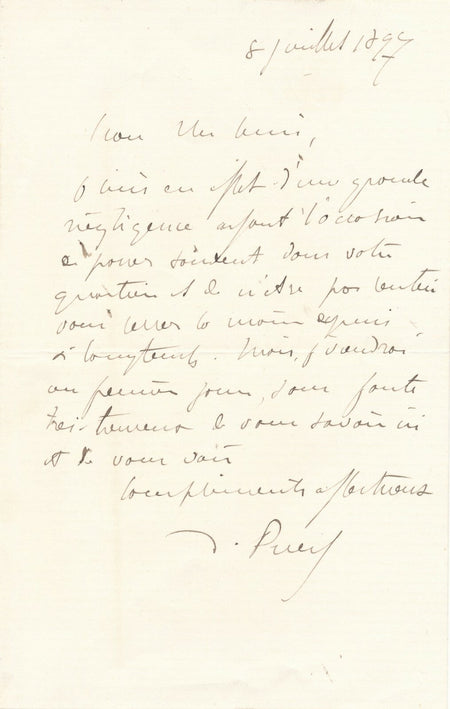 8 juillet 1897
Mon cher ami,
Je suis en effet d'une grande
négligence ayant l'occasion
de passer souvent dans votre
quartier et de n'être pas entré
vous serrer la main depuis
si longtemps. Mais, j'viendrai
un premier jour, sans faute
très heureux de vous savoir ici
et de vous voir
Compliments affectueux